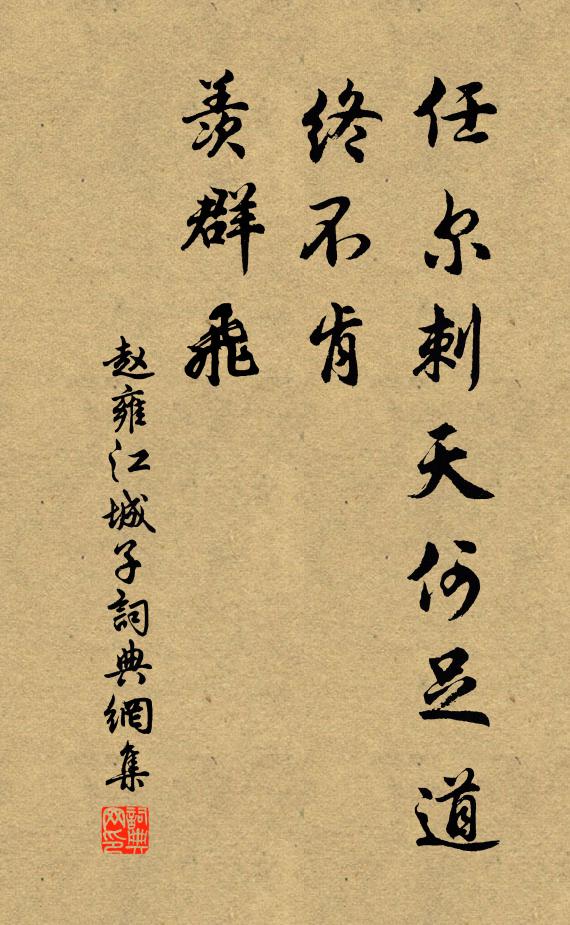 任尔刺天何足道
终不肯
羡群飛
赵雍江城子詞典網集
詞典网印